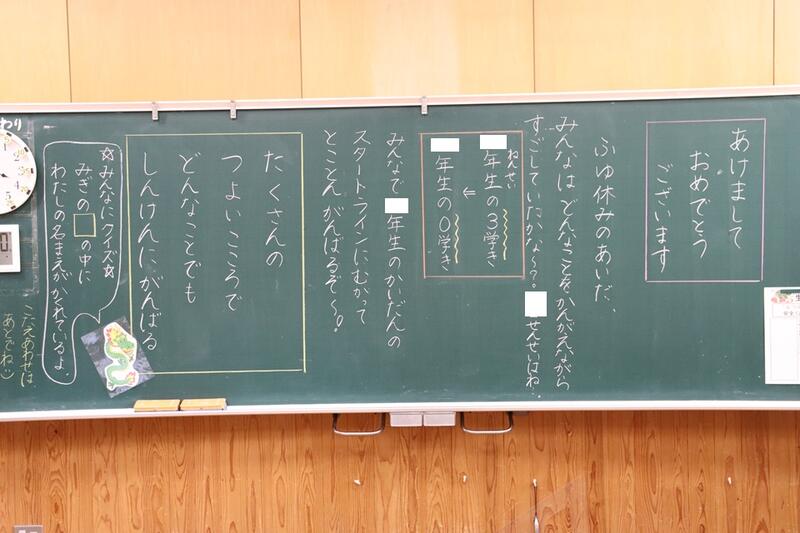 あけまして
おめでとう
ございます
ふゆ休みのあいだ、
みんなは どんなことを かんがえながら
すごしていたかな〜?
せんせいはね・
年生の3学き
ねんせい
⇐
年生の0学き
みんなで 年生のかいだんの
スタートラインにむかって
とことん がんばるぞ〜!
たくさんの
つよいこころで
どんなことでも
しんけんにがんばる
☆みんなにクイズ☆
みぎの□の中に
わたしの名まえがかくれているよ。
こたえあわせは
あとでね
わり